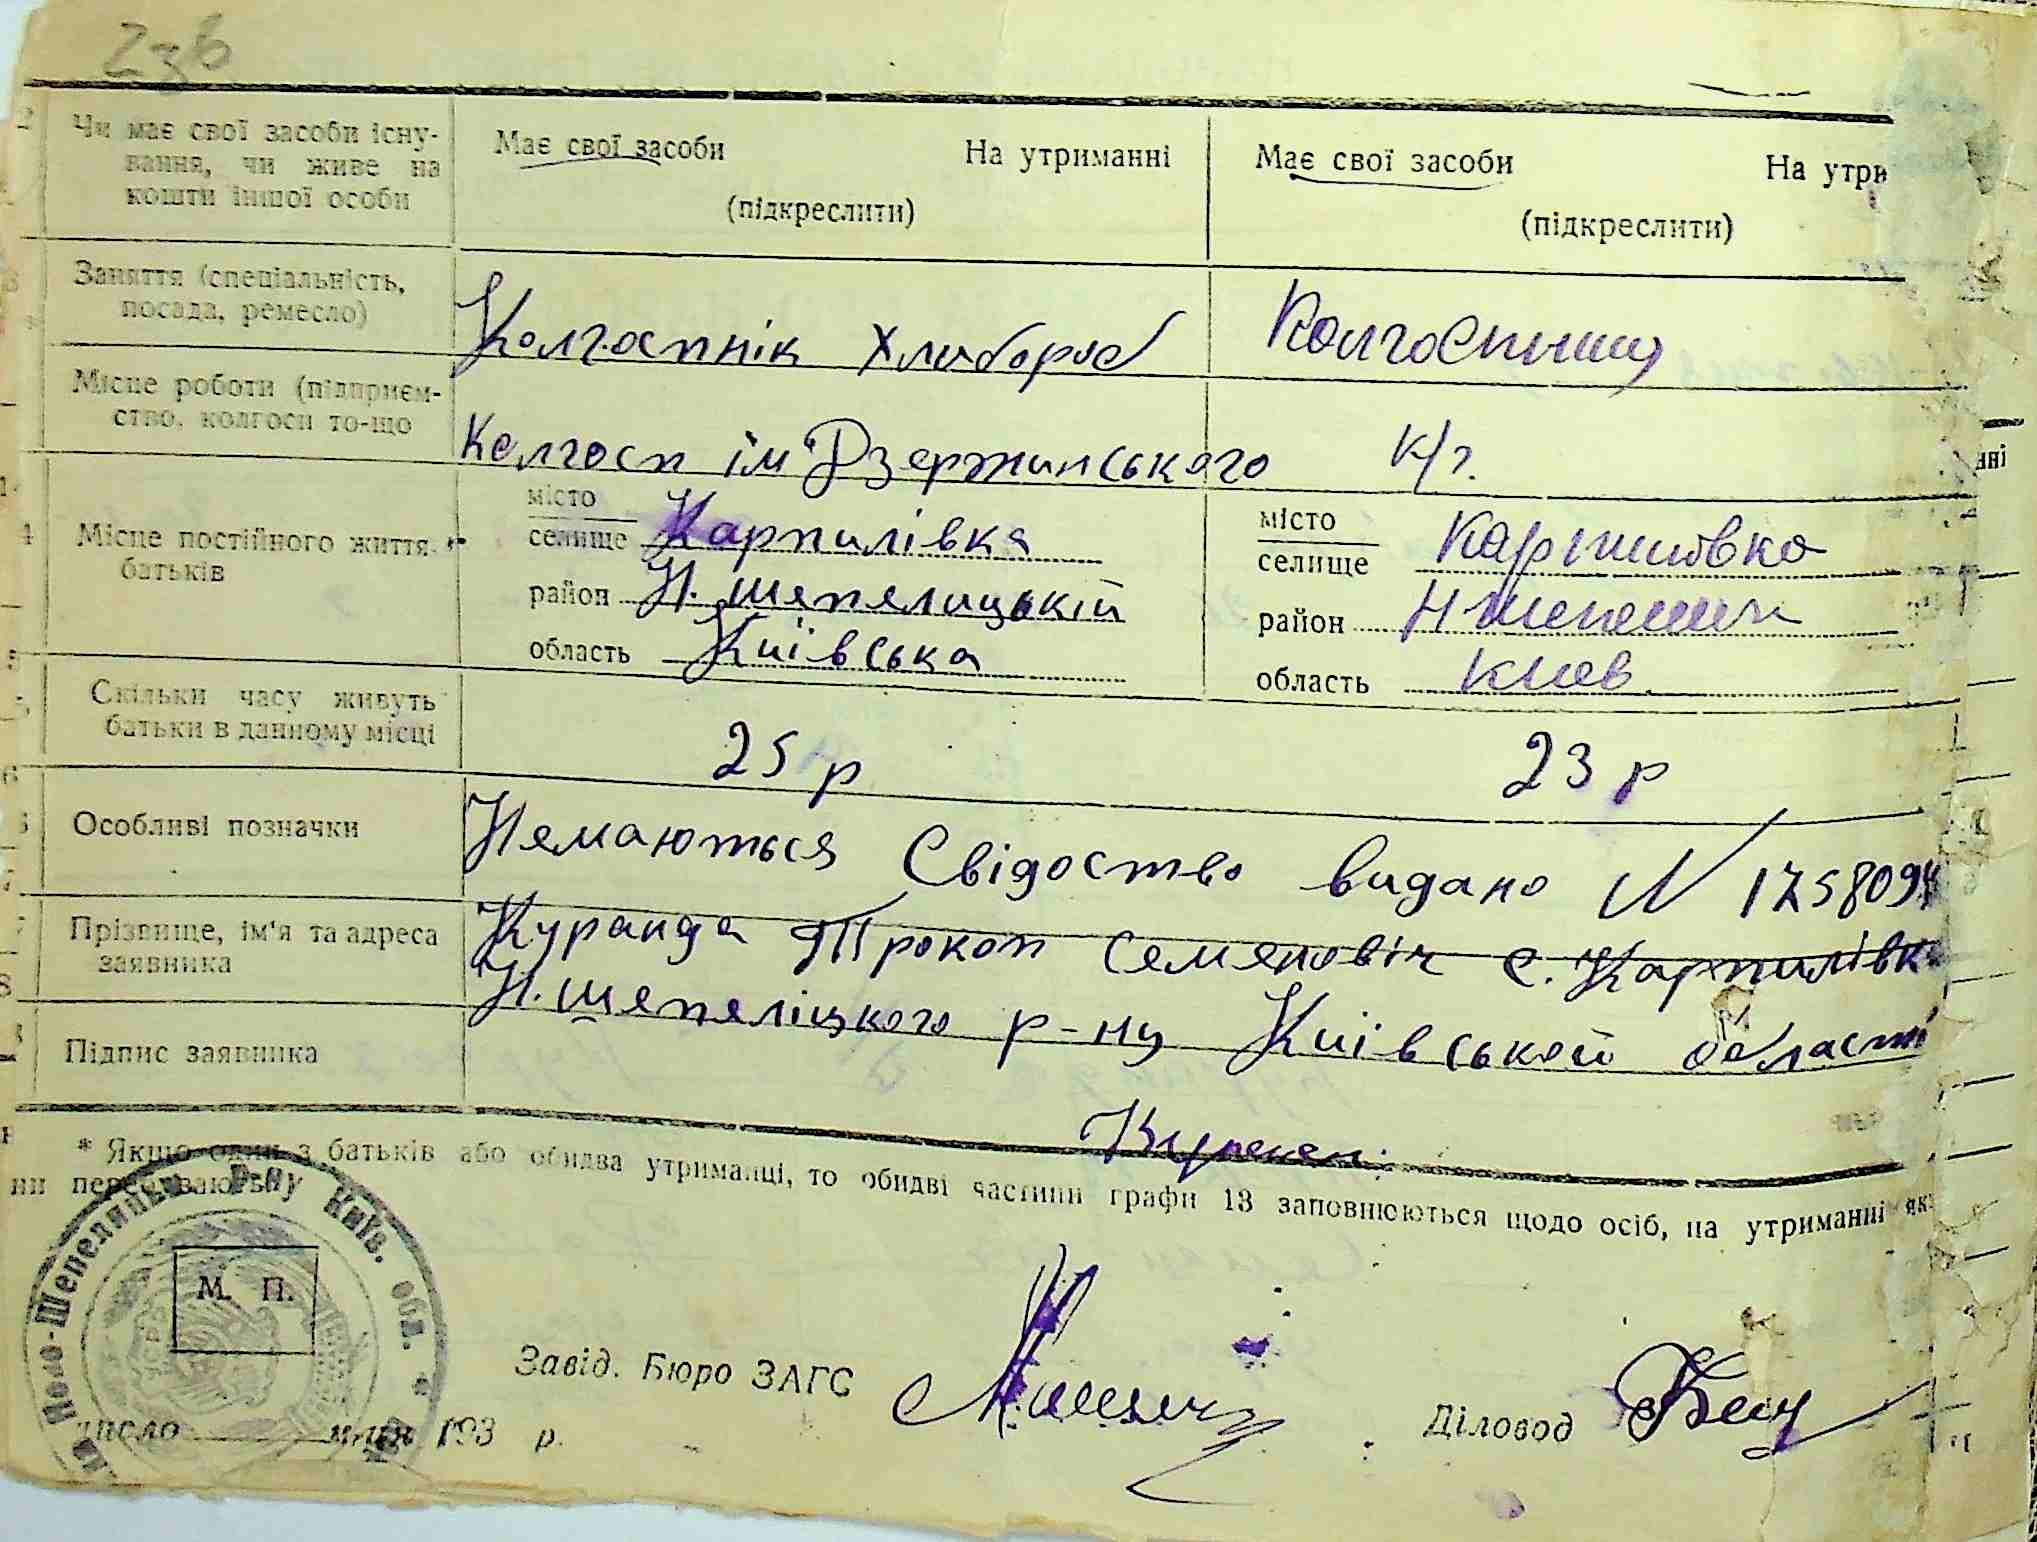 236
Чи має свої засоби існу-
вання, чи живе на
кошти іншої особи
Має свої засоби На утриманні
(підкреслити)
Має свої засоби На утри
(підкреслити)
Заняття (спеціальність,
посада, ремесло)
Колгоспнік Хлибороб
Колгоспниц
Місце роботи (підприєм-
ство, колгосп то-що
Колгосп ім Дзержинського
К/г.
Місце постійного життя
батьків
місто
селище Карпилівка
район Н. Шепелицькій
область Київська
місто
селище Карпиловка
район Н Шепелич
область Киев
Скільки часу живуть
батьки в данному місці
25 р
23 р
Особливі позначки
Немаються Свідоство видано N 1758094
Прізвище, ім'я та адреса
заявника
Куранда Прокоп Семенович с. Карпилівк
Н. Шепеліцкого р-ну Київської області
Підпис заявника
* Якщо один з батьків або обидва утриманці, то обидві частини графи 13 заповнюються щодо осіб, на утриманні як
ни перебувають
Ново-Шепелицьк Р-ну Київ. обл. *
М. П.
Завід. Бюро ЗАГС
Діловод
число місяця 193 р.
нні